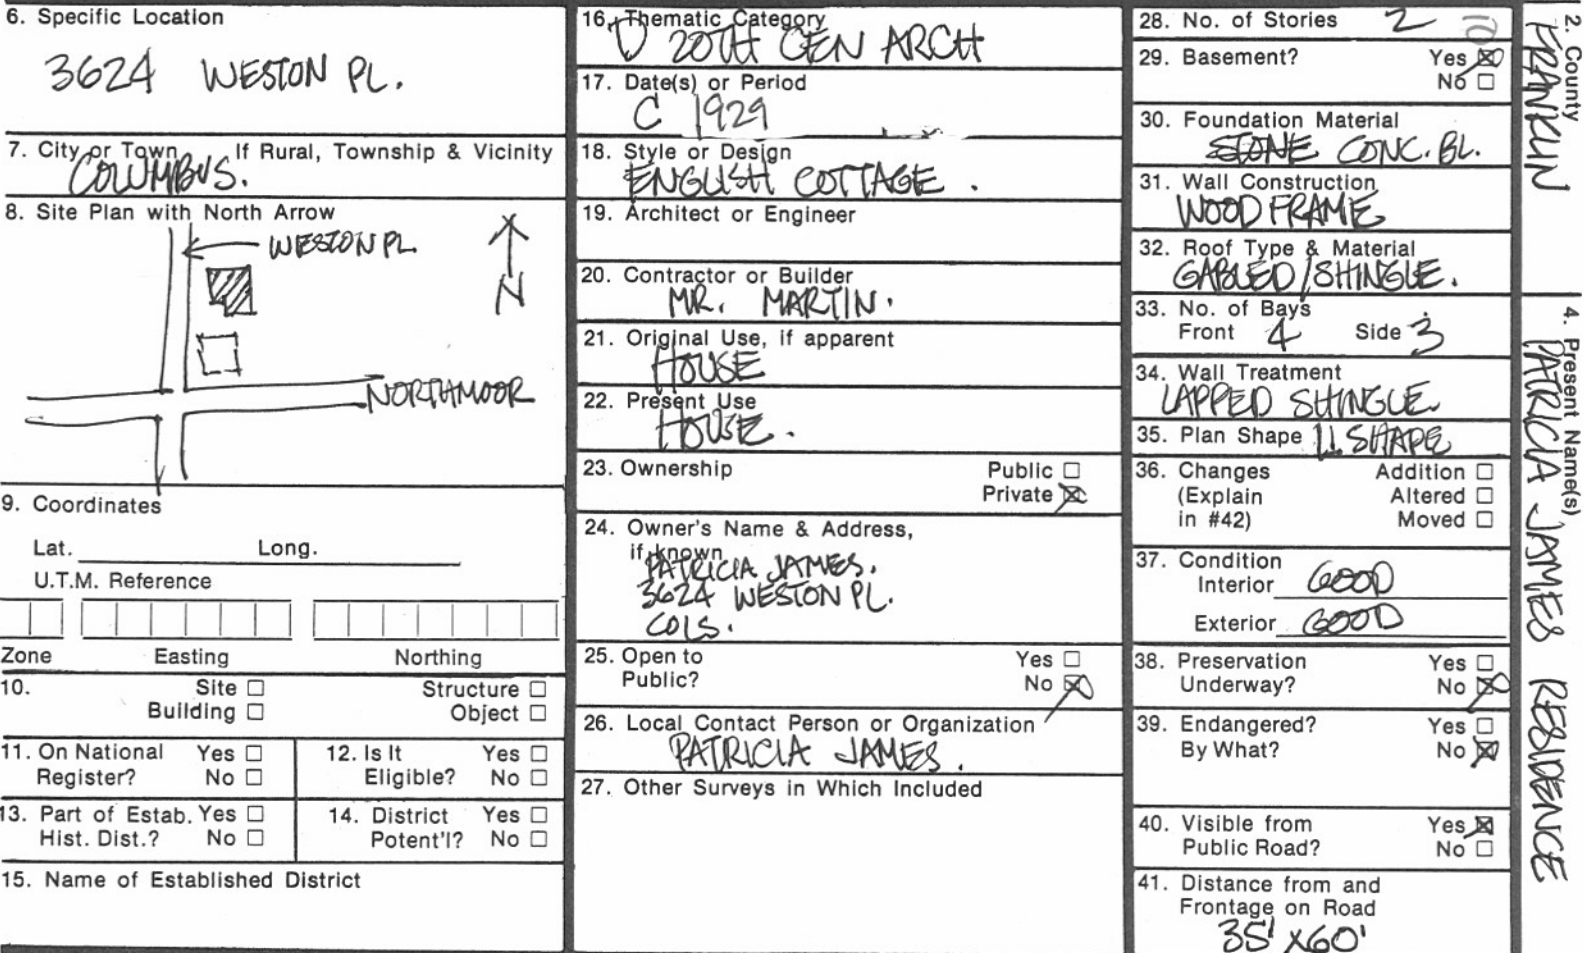 6. Specific Location
3624 WESTON PL.
7. City or Town If Rural, Township & Vicinity
COLUMBUS.
8. Site Plan with North Arrow
WESTON PL.
N
NORTHMOOR
9. Coordinates
Lat. Long.
U.T.M. Reference
Zone Easting Northing
10. Site □ Structure □
Building □ Object □
11. On National Yes □
Register? No □
12. Is It Yes □
Eligible? No □
13. Part of Estab. Yes □
Hist. Dist.? No □
14. District Yes □
Potent'l? No □
15. Name of Established District
16. Thematic Category
20TH CEN ARCH
17. Date(s) or Period
C 1929
18. Style or Design
ENGLISH COTTAGE.
19. Architect or Engineer
20. Contractor or Builder
MR. MARTIN.
21. Original Use, if apparent
HOUSE
22. Present Use
HOUSE.
23. Ownership Public □
Private ☒
24. Owner's Name & Address,
if known
PATRICIA JAMES.
3624 WESTON PL.
COLS.
25. Open to Yes □
Public? No ☒
26. Local Contact Person or Organization
PATRICIA JAMES.
27. Other Surveys in Which Included
28. No. of Stories 2
29. Basement? Yes ☒
No □
30. Foundation Material
STONE CONC. BL.
31. Wall Construction
WOOD FRAME
32. Roof Type & Material
GABLED/SHINGLE.
33. No. of Bays
Front 4 Side 3
34. Wall Treatment
LAPPED SHINGLE.
35. Plan Shape SHAPE
36. Changes Addition □
(Explain Altered □
in #42) Moved □
37. Condition
Interior GOOD
Exterior GOOD
38. Preservation Yes □
Underway? No ☒
39. Endangered? Yes □
By What? No ☒
40. Visible from Yes ☒
Public Road? No □
41. Distance from and
Frontage on Road
35' x 60'
2. County
FRANKLIN
4. Present Name(s)
PATRICIA JAMES RESIDENCE